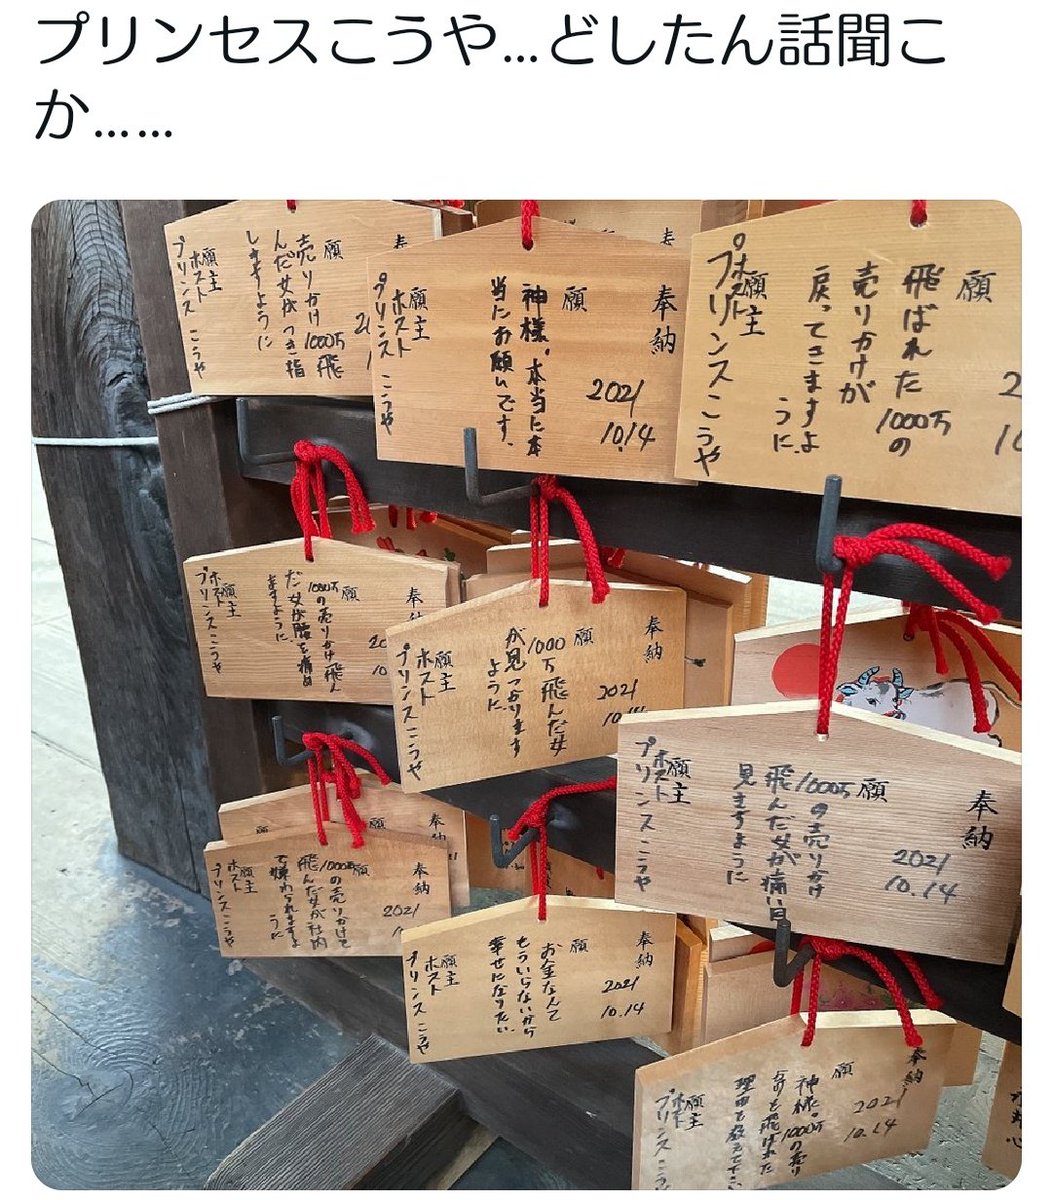 プリンセスこうや...どしたん話聞こ
か......
奉
願
売りかけ1000万飛
んだ女がつき指
しますように
願主
ホスト
プリンス こうや
奉納
2021
10.14
願
神様、本当に本
当にお願いです、
願主
ホスト
プリンス こうや
願
飛ばれた1000万の
売りかけが
戻ってきますよ
うに、
願主
ホスト
プリンスこうや
奉納
願
1000万の売りかけ飛ん
だ女が腰を痛め
ますように、
願主
ホスト
プリンスこうや
奉納
2021
10.14
願
1000万飛んだ女
が見つかります
ように
願主
ホスト
プリンスこうや
奉納
2021
10.14
願
1000万の売りかけ
飛んだ女が痛い目
見ますように
願主
ホスト
プリンスこうや
奉納
2021
願
1000万の売りかけて
飛んだ女が社内
で嫌われますよ
うに
願主
ホスト
プリンスこうや
奉納
2021
10.14
願
お金なんて
もういらないから
幸せになりたい、
願主
ホスト
プリンスこうや
奉納
2021
10.14
願
神様。1000万の売り
飛ばれた
理由を教えて下
願主
ホスト
プリンスこうや